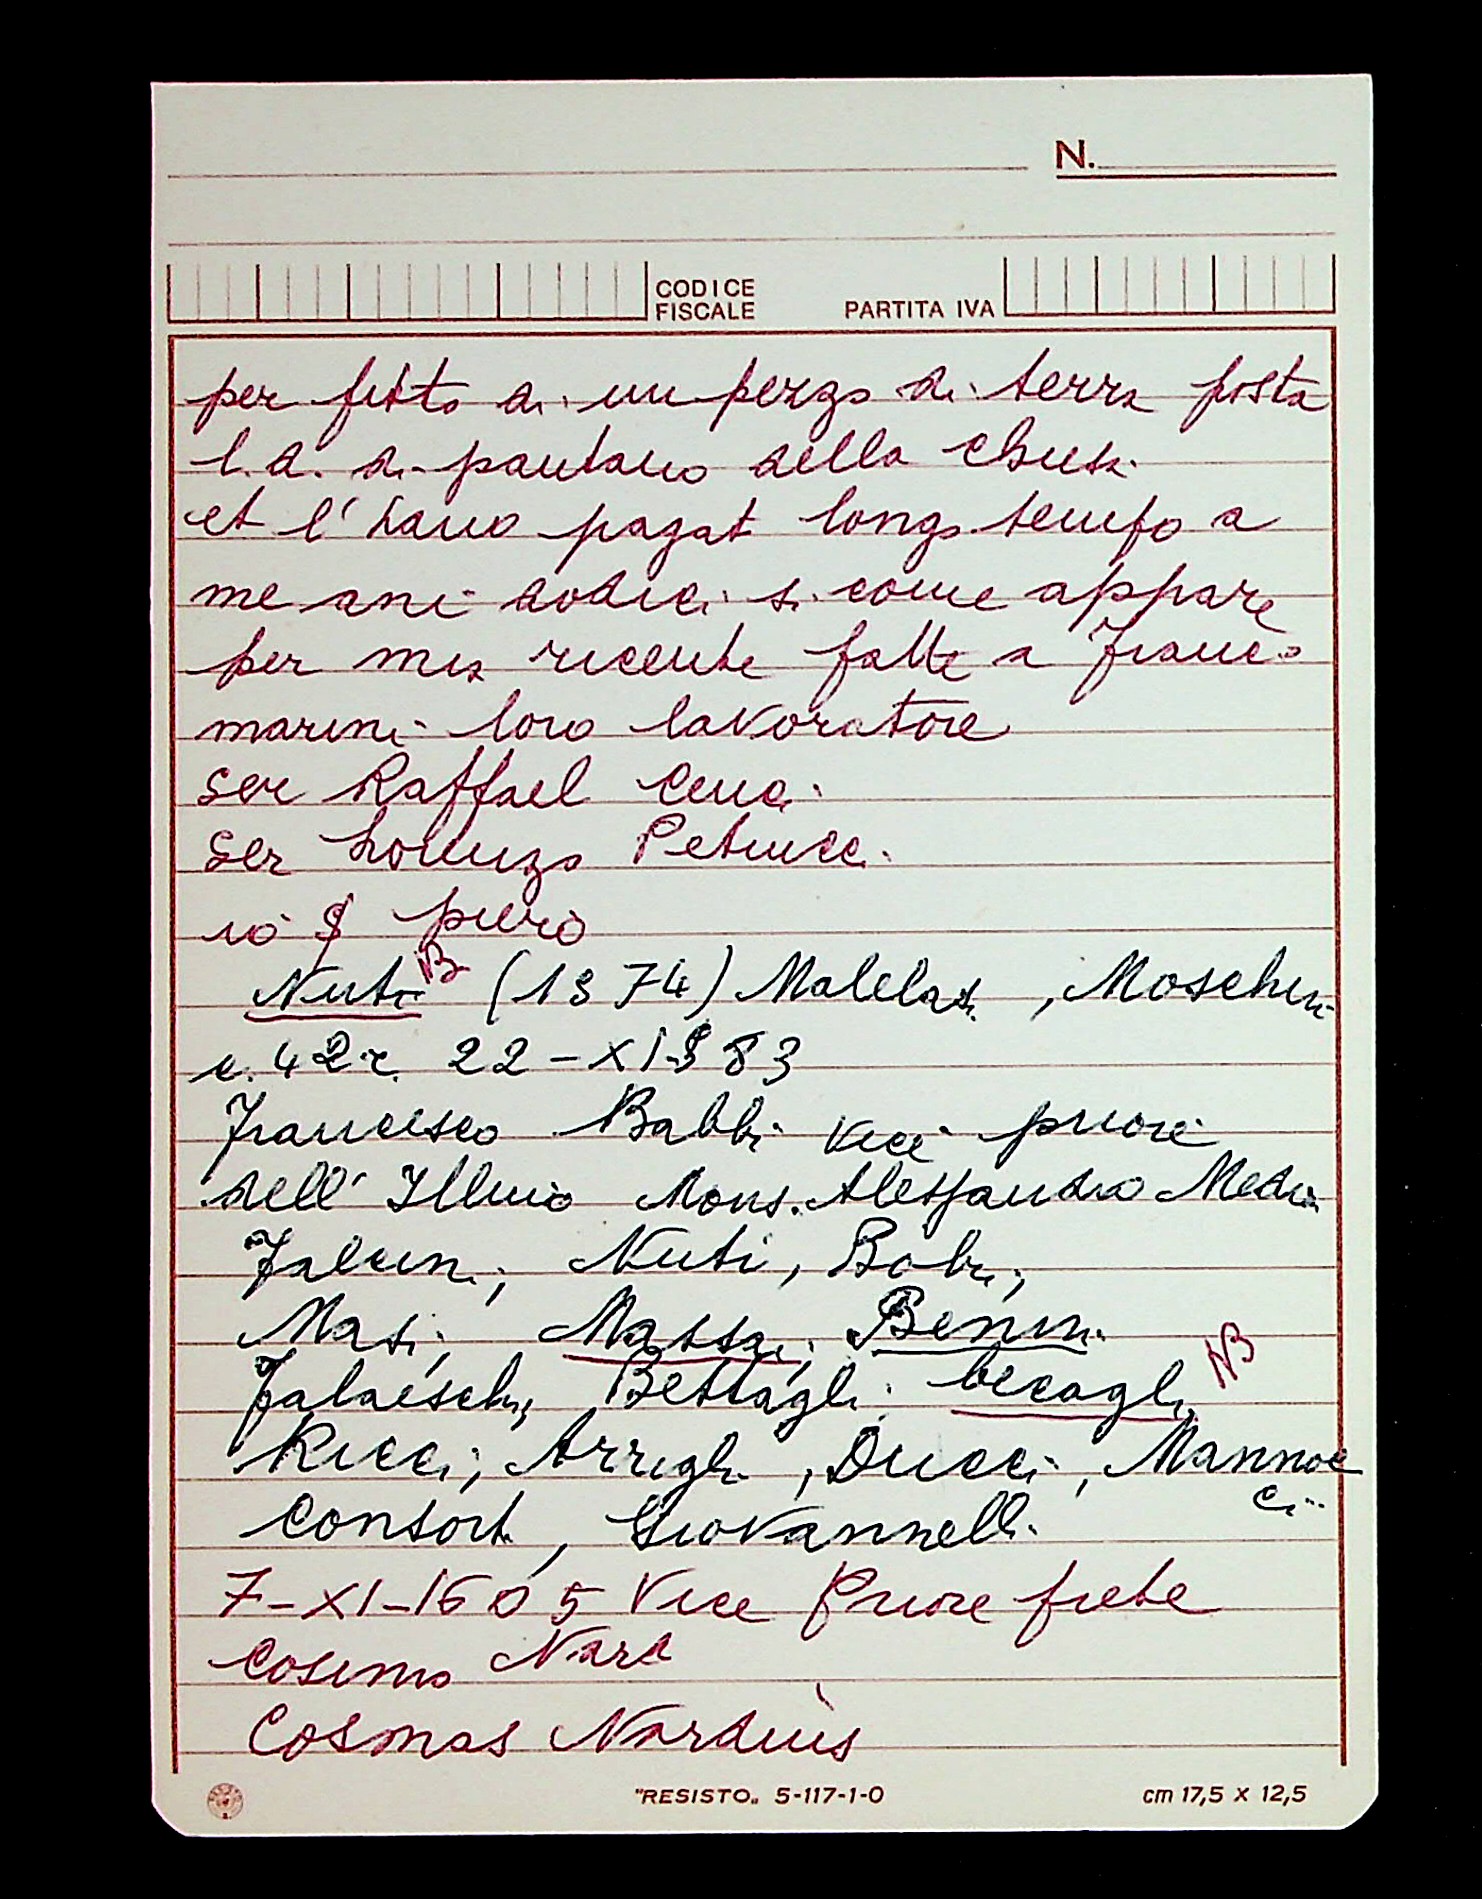 N.
CODICE
FISCALE
PARTITA IVA
per fitto di un pezzo di terra posta
l.d. di pantano della chiusa
et l'hano pagat longo tempo a
me ani dodici si come appare
per mia ricente fatte a Franco
marini loro lavoratore
ser Raffael Cenci
ser Lorenzo Petrucci
io piero
NB
Nuti (1574) Malelasi, Moscheni
c. 42 r. 22-XI 583
Francesco Babbi vice priore
dell' Illmo Mons. Alessandro Medici
Falcini; Nuti, Bobi;
Masi; Massai; Benini
NB
Falaeschi, Bettagli becagli
Ricci; Arrighi, Ducci, Mannoc
ci..
Consorti, Giovannelli
7-XI-1605 Vice Priore frete
Cosimo Nardi
Cosmas Narduis
"RESISTO" 5-117-1-0
cm 17,5 x 12,5